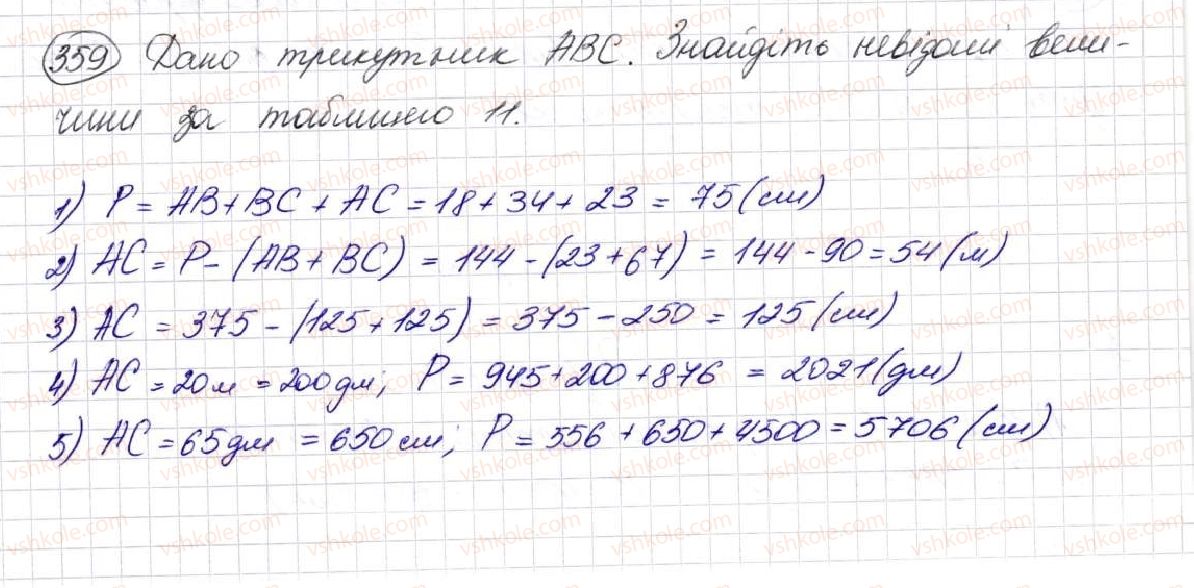 359 Дано трикутник ABC. Знайдіть невідомі вели-
чини за таблицею 11.
1) P = AB + BC + AC = 18 + 34 + 23 = 75 (см)
2) AC = P - (AB + BC) = 144 - (23 + 67) = 144 - 90 = 54 (м)
3) AC = 375 - (125 + 125) = 375 - 250 = 125 (см)
4) AC = 20м = 200 дм; P = 945 + 200 + 876 = 2021 (дм)
5) AC = 65 дм = 650 см; P = 556 + 650 + 4500 = 5706 (см)
vshkole.com